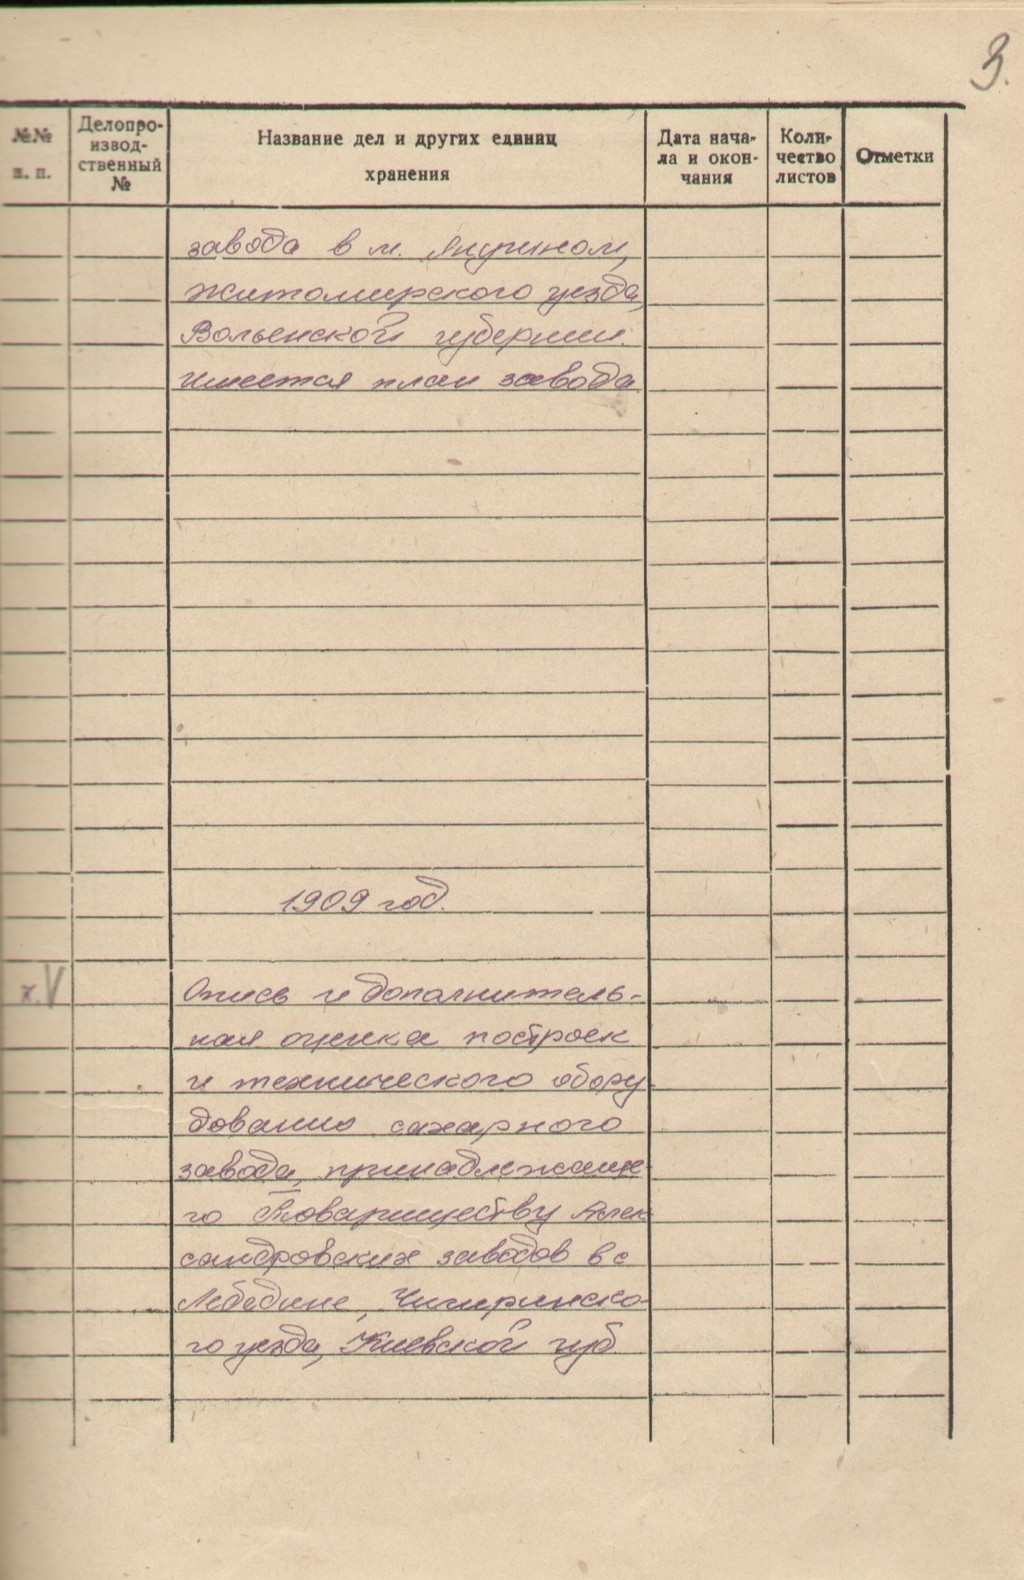 3.
№№
п. п.
Делопро-
извод-
ственный
№
Название дел и других единиц
хранения
Дата нача-
ла и окон-
чания
Коли-
чество
листов
Отметки
завода в м.
Житомирского уезда,
Волынской губернии.
Имеется план завода
1909 год.
Опись и дополнитель-
ная оценка построек
и технического обору
дования сахарного
завода, принадлежаще-
го Товариществу Алек
сандровских заводов в с
Лебедине, Чигиринско-
го уезда, Киевской губ